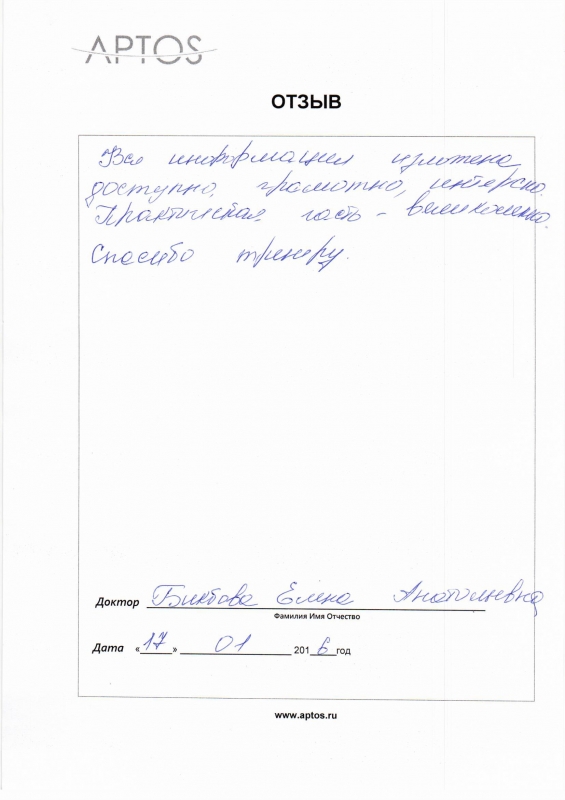 APTOS
ОТЗЫВ
Вся информация изложена
доступно, грамотно, интересно.
Практическая часть - великолепно.
Спасибо тренеру.
Доктор Бикбова Елена Анатольевна
Фамилия Имя Отчество
Дата «17» 01 2016 год
www.aptos.ru